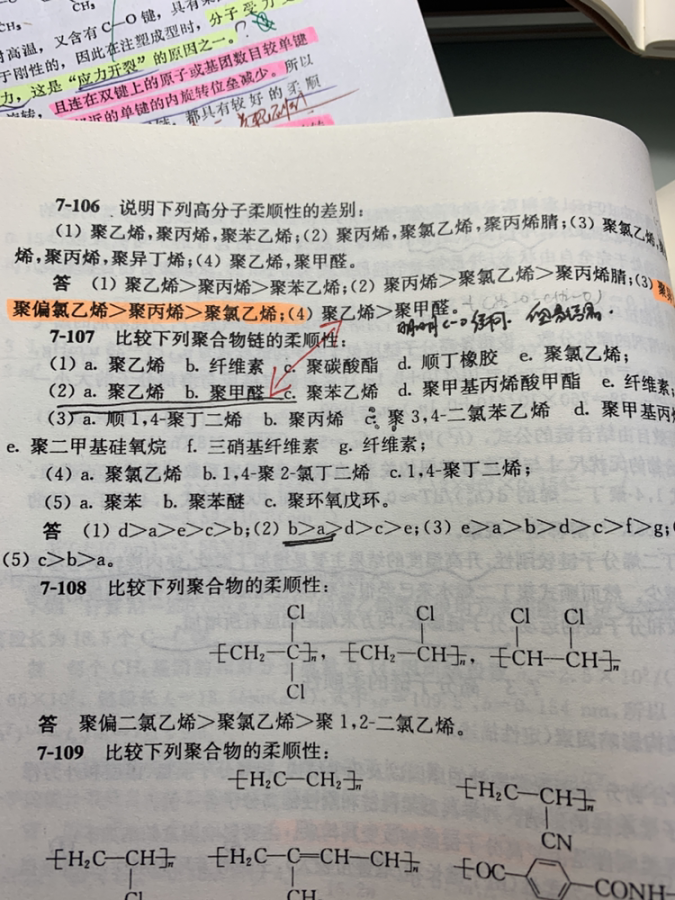 CH₃
CH₃
又含有 C—O 键，具有
高温，
于刚性的，因此在注塑成型时，分子受力
力，这是“应力开裂”的原因之一。
且连在双键上的原子或基团数目较单键
近的单键的内旋转位垒减少。所以
都具有较好的柔顺
7-106 说明下列高分子柔顺性的差别：
（1）聚乙烯，聚丙烯，聚苯乙烯；（2）聚丙烯，聚氯乙烯，聚丙烯腈；（3）聚氯乙烯，
烯，聚丙烯，聚异丁烯；（4）聚乙烯，聚甲醛。
答 （1）聚乙烯＞聚丙烯＞聚苯乙烯；（2）聚丙烯＞聚氯乙烯＞聚丙烯腈；（3）
聚偏氯乙烯＞聚丙烯＞聚氯乙烯；（4）聚乙烯＞聚甲醛。
7-107 比较下列聚合物链的柔顺性：
（1）a. 聚乙烯 b. 纤维素 c. 聚碳酸酯 d. 顺丁橡胶 e. 聚氯乙烯；
（2）a. 聚乙烯 b. 聚甲醛 c. 聚苯乙烯 d. 聚甲基丙烯酸甲酯 e. 纤维素；
（3）a. 顺 1,4-聚丁二烯 b. 聚丙烯 c. 聚 3,4-二氯苯乙烯 d. 聚甲基丙
e. 聚二甲基硅氧烷 f. 三硝基纤维素 g. 纤维素；
（4）a. 聚氯乙烯 b.1,4-聚 2-氯丁二烯 c.1,4-聚丁二烯；
（5）a. 聚苯 b. 聚苯醚 c. 聚环氧戊环。
答 （1）d＞a＞e＞c＞b；（2）b＞a＞d＞c＞e；（3）e＞a＞b＞d＞c＞f＞g；
（5）c＞b＞a。
7-108 比较下列聚合物的柔顺性：
Cl Cl Cl Cl
⁅CH₂—C⁆ₙ，⁅CH₂—CH⁆ₙ，⁅CH—CH⁆ₙ
Cl
答 聚偏二氯乙烯＞聚氯乙烯＞聚 1,2-二氯乙烯。
7-109 比较下列聚合物的柔顺性：
⁅H₂C—CH₂⁆ₙ ⁅H₂C—CH⁆ₙ
CN
⁅H₂C—CH⁆ₙ ⁅H₂C—C=CH—CH⁆ₙ ⁅OC CONH
Cl CH